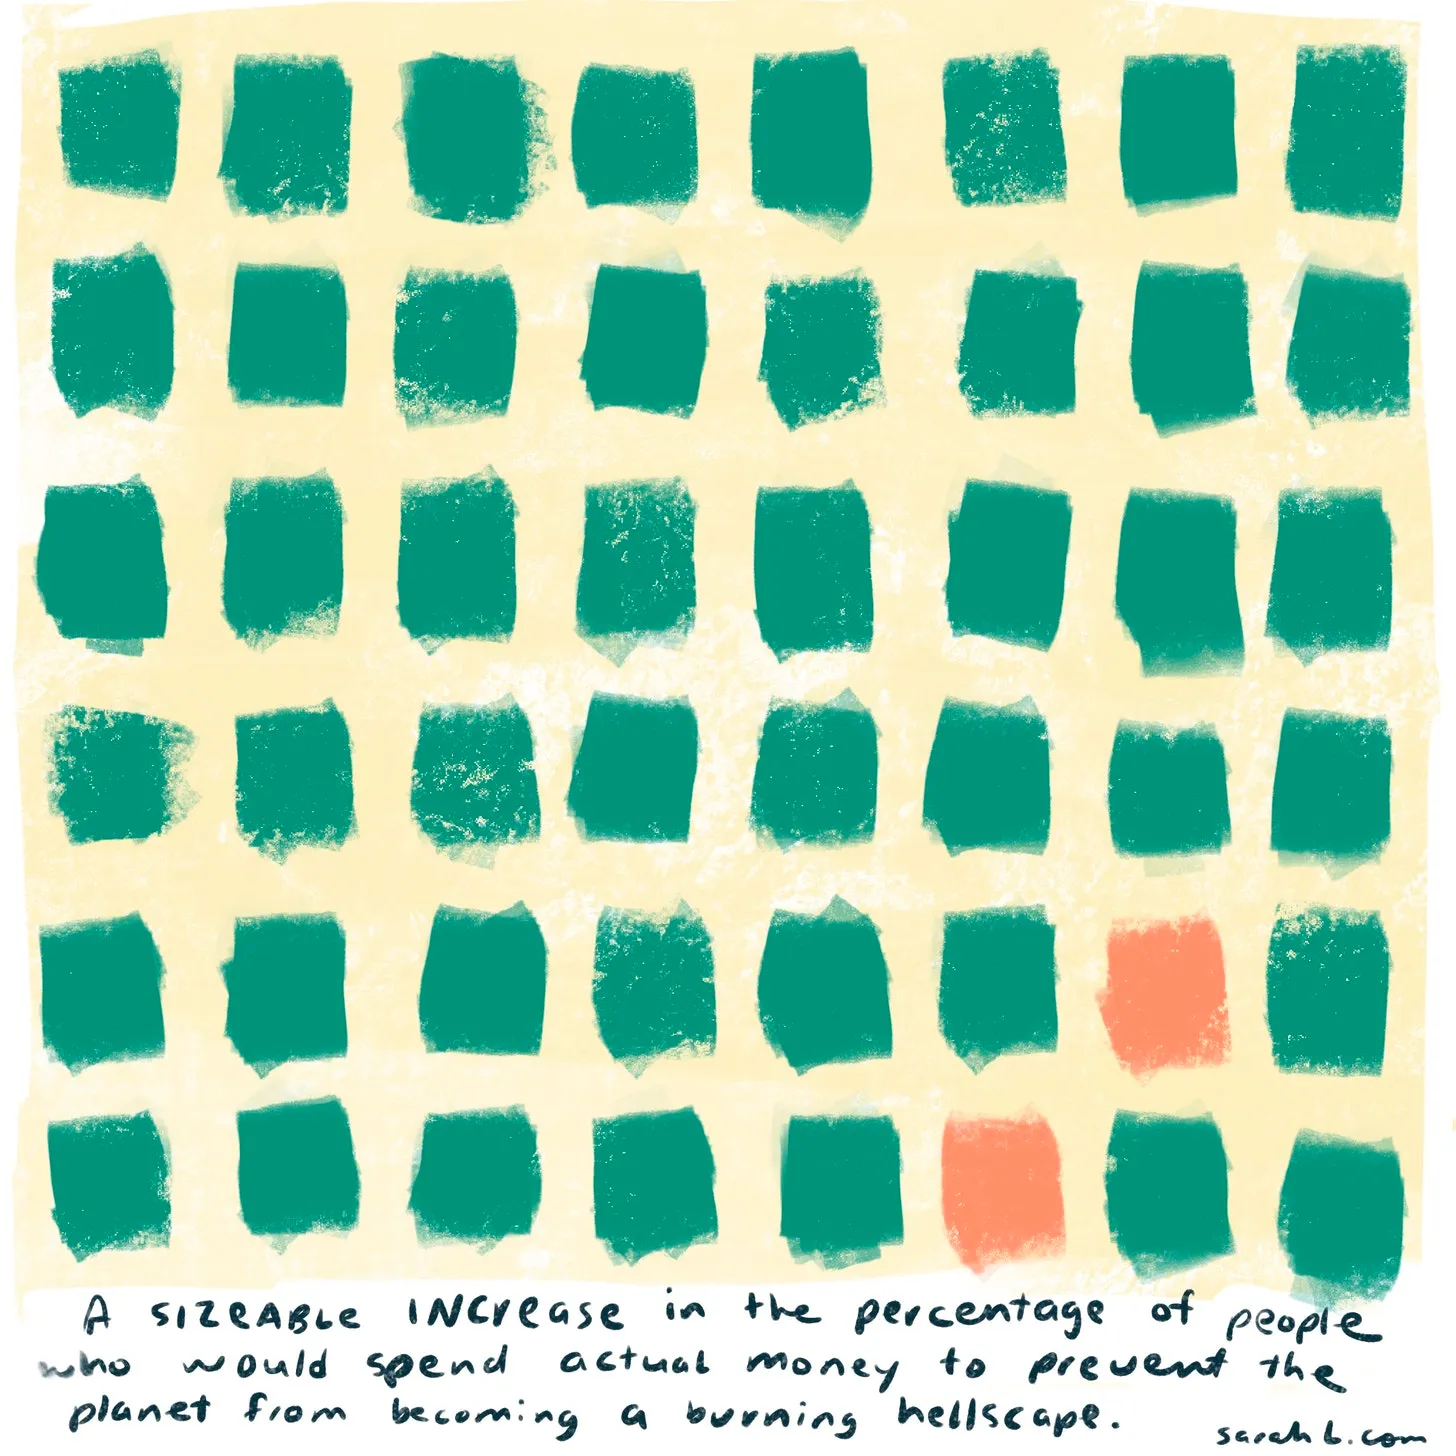 A SIZEABLE INCREASE in the percentage of people
who would spend actual money to prevent the
planet from becoming a burning hellscape.
sarah b.com